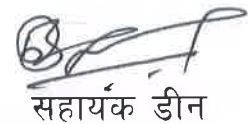 सहायक डीन